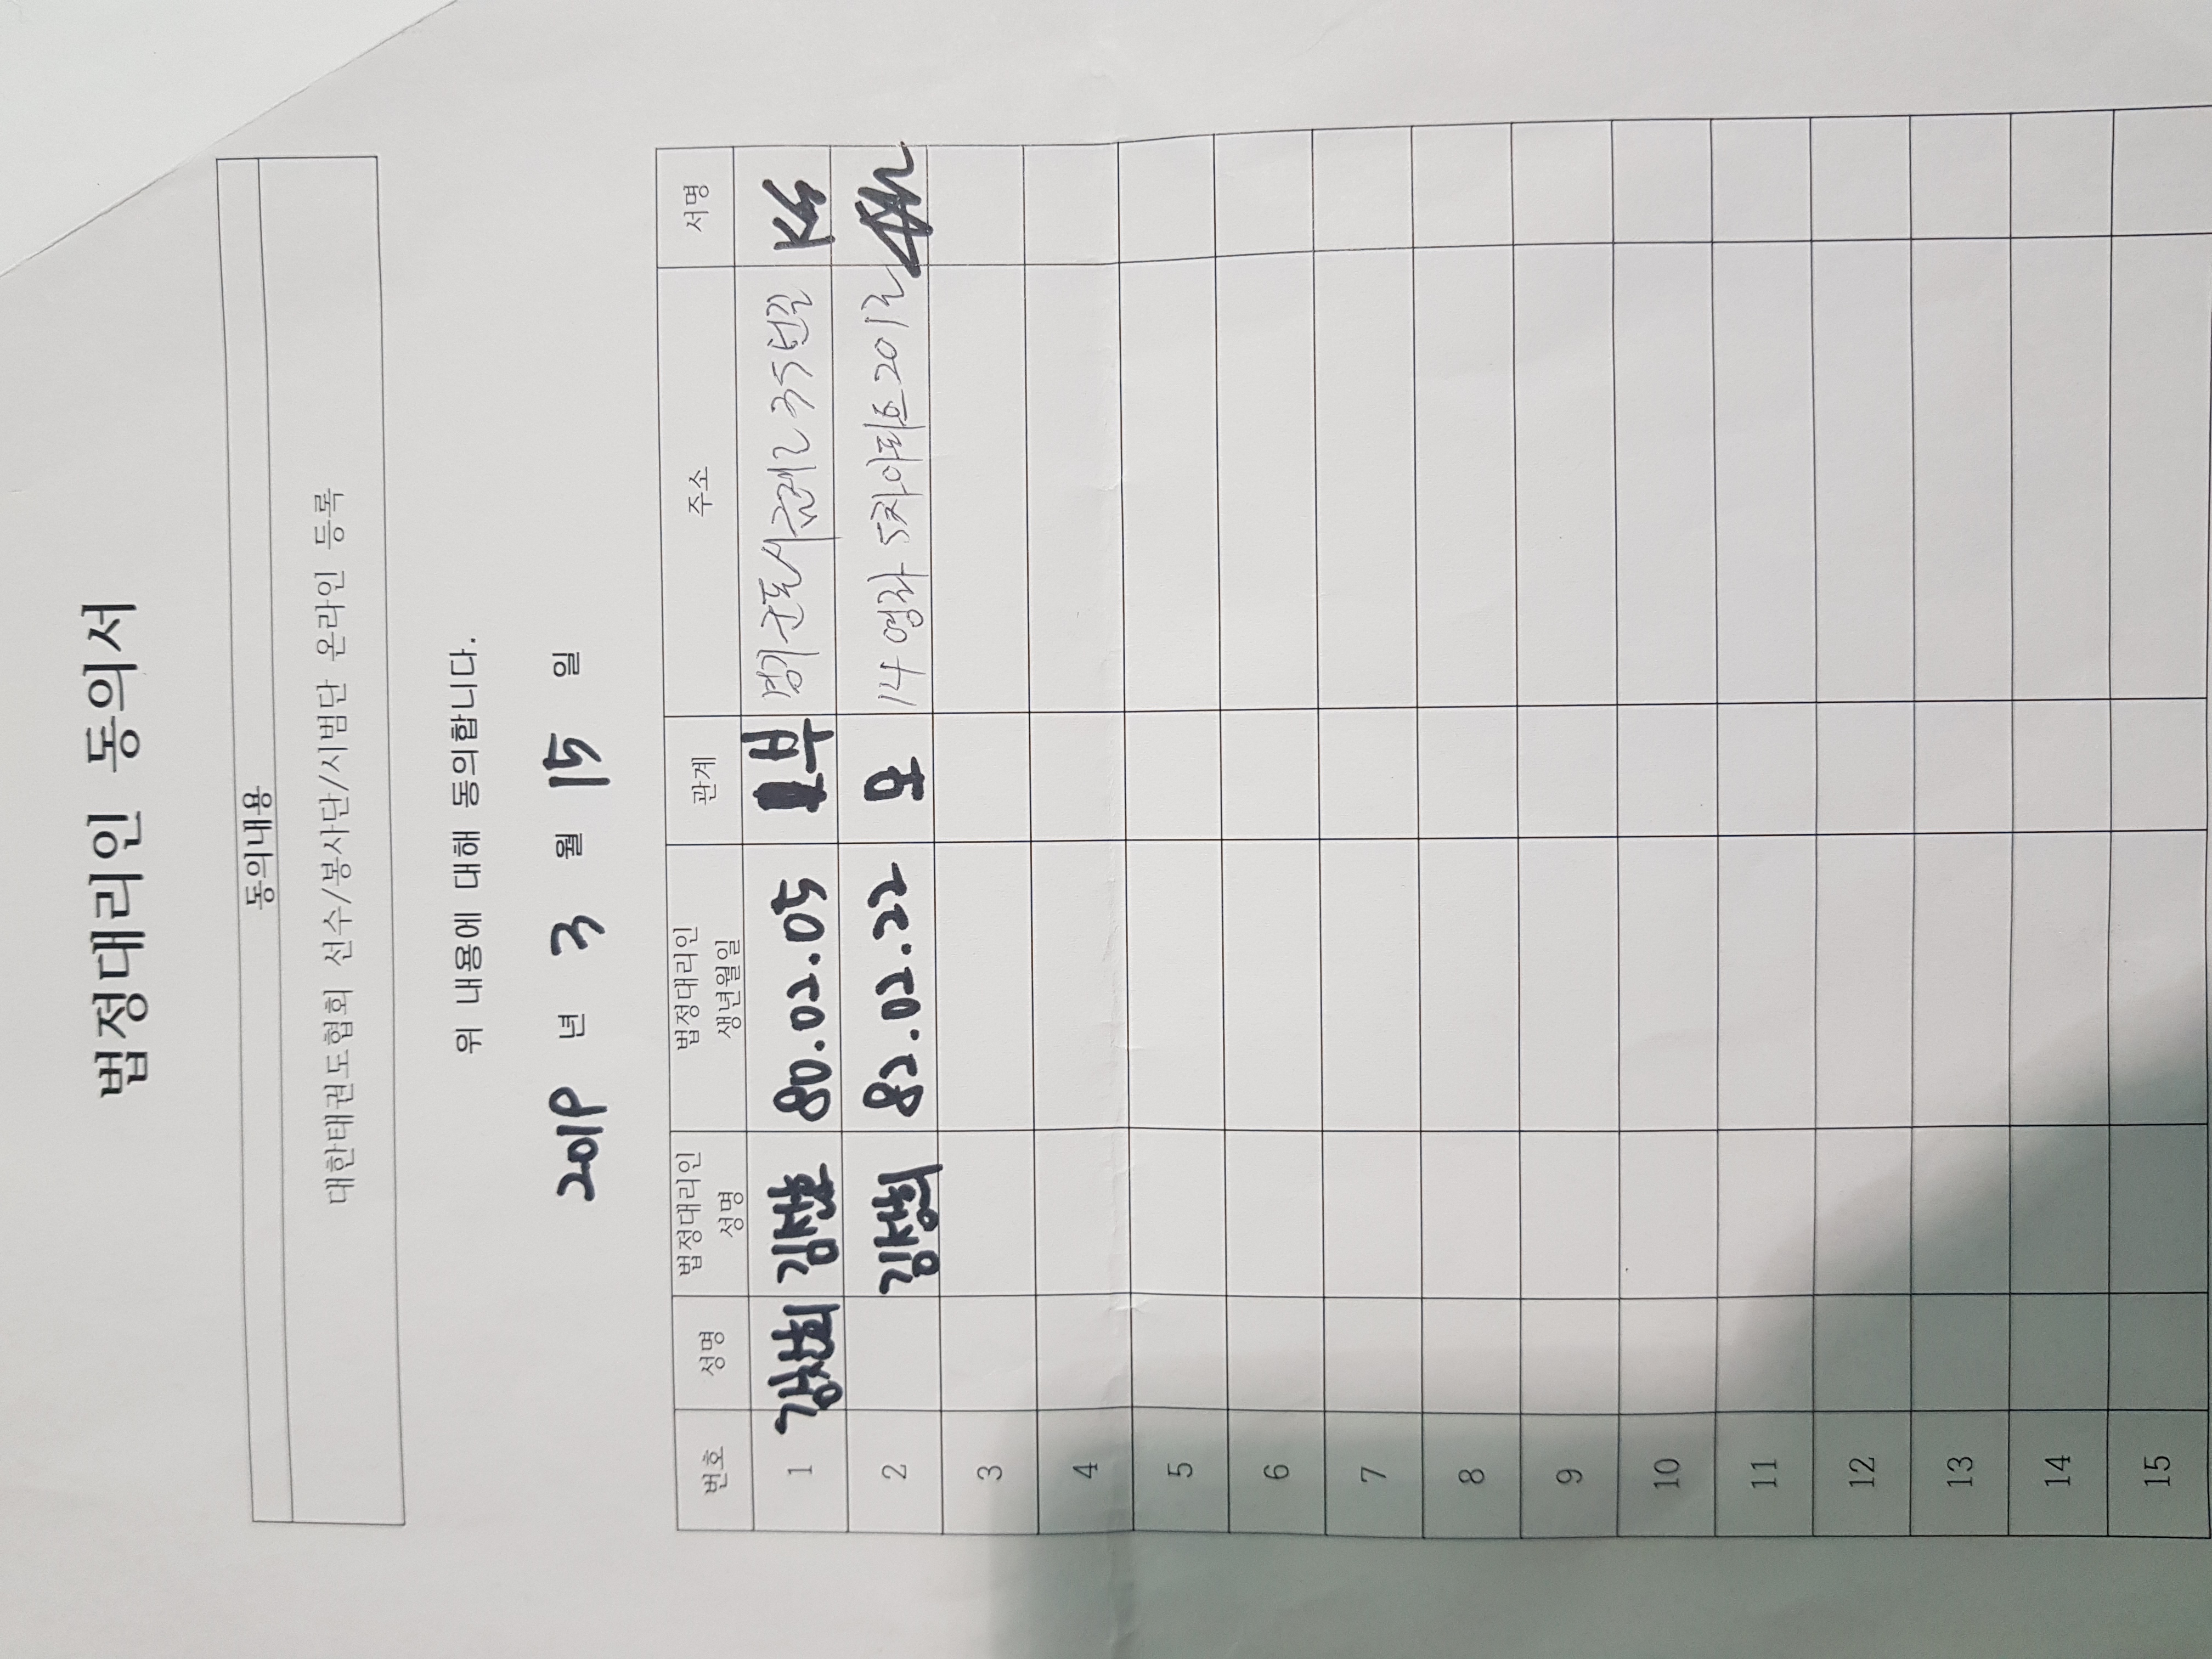 법정대리인 동의서
동의내용
대한태권도협회 선수/봉사단/시범단 온라인 등록
위 내용에 대해 동의합니다.
2019 년 3 월 15 일
번호 성명 법정대리인 성명 법정대리인 생년월일 관계 주소 서명
1 80.02.05 부 경기 군포시 235번길
2 김정희 82.02.22 모 14 5차아파트 201호
3
4
5
6
7
8
9
10
11
12
13
14
15